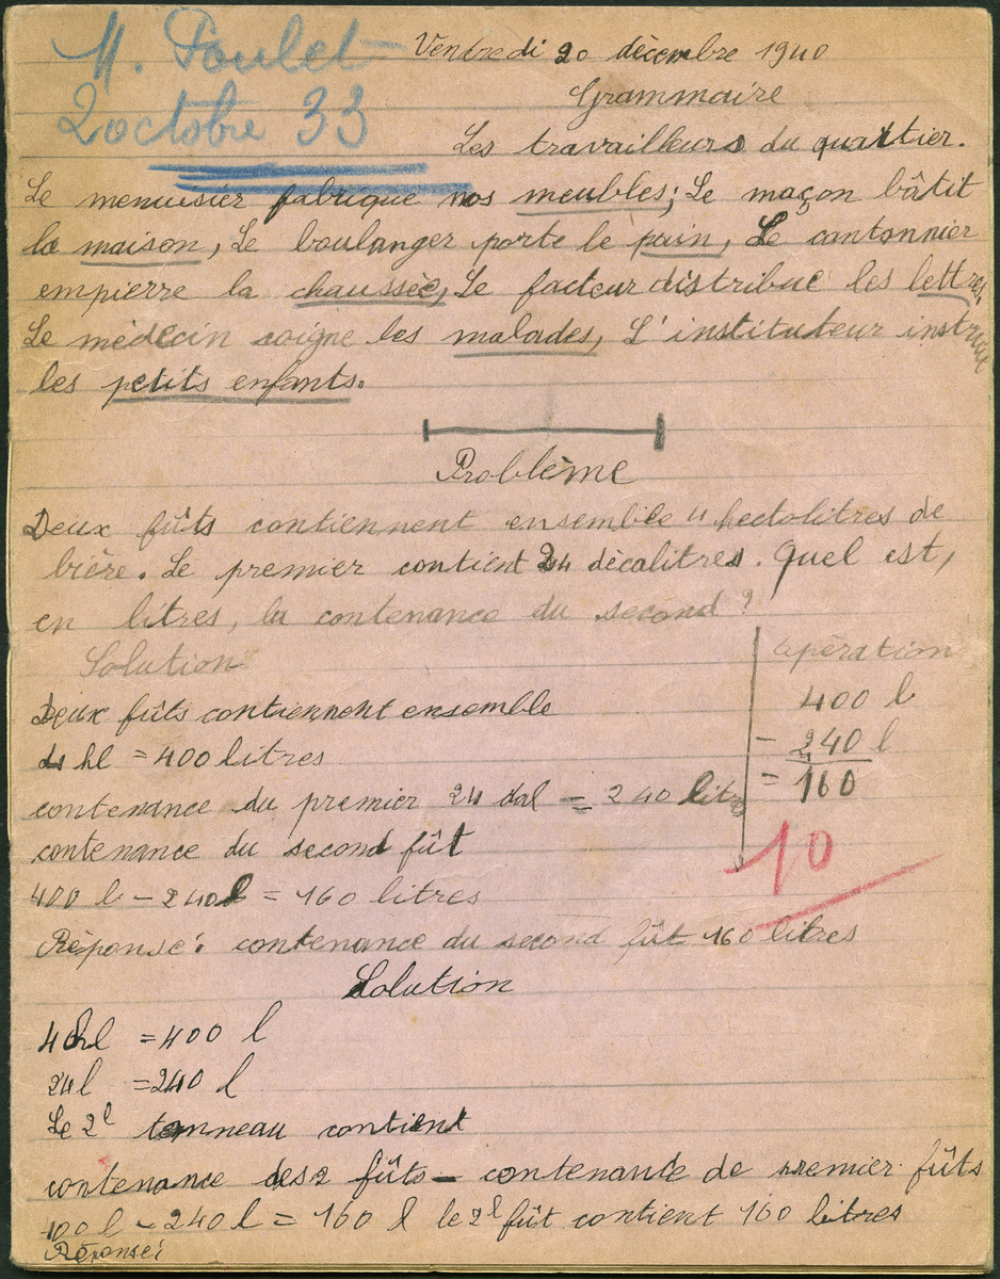 M. Poulet
2 octobre 33
Vendredi 20 décembre 1940
Grammaire
Les travailleurs du quartier.
Le menuisier fabrique nos meubles; Le maçon bâtit
la maison, Le boulanger porte le pain, Le cantonnier
empierre la chaussèe, Le facteur distribue les lettres
Le médecin soigne les malades, L'instituteur instruit
les petits enfants.
Problème
Deux fûts contiennent ensemble 4 hectolitres de
bière. Le premier contient 24 décalitres. Quel est,
en litres, la contenance du second ?
Solution
Deux fûts contiennent ensemble
4 hl = 400 litres
contenance du premier 24 dal = 240 litres
contenance du second fût
400 l - 240 l = 160 litres
Réponse : contenance du second fût 160 litres
Opération
400 l
- 240 l
= 160
10
Solution
4 hl = 400 l
24 l = 240 l
Le 2e tonneau contient
contenance des 2 fûts - contenante de premier fûts
400 l - 240 l = 160 l le 2e fût contient 160 litres
Réponse :